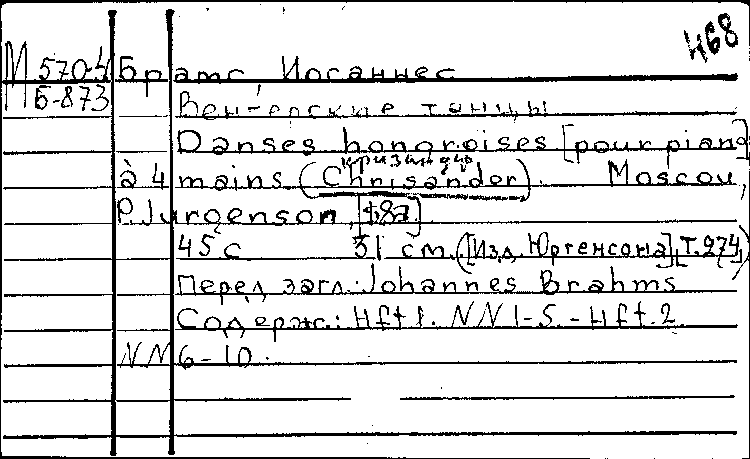 468
М 570-4 Брамс, Иоганнес
Б-873
Венгерские танцы
Danses hongroises [pour piano
кризандер
à 4 mains (Chrisander). Moscou,
P. Jurgenson, [187]
45 с 31 см. ([Изд. Юргенсона], Т. 274)
Перед загл.: Johannes Brahms
Содерж.: Hft 1. NN 1-5. - Hft. 2
NN 6-10.